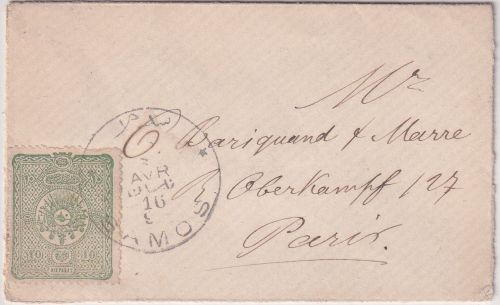 Mr
Bariquand & Marre
R. Oberkampf 127
Paris.
AVR
16
SAMOS
10 10